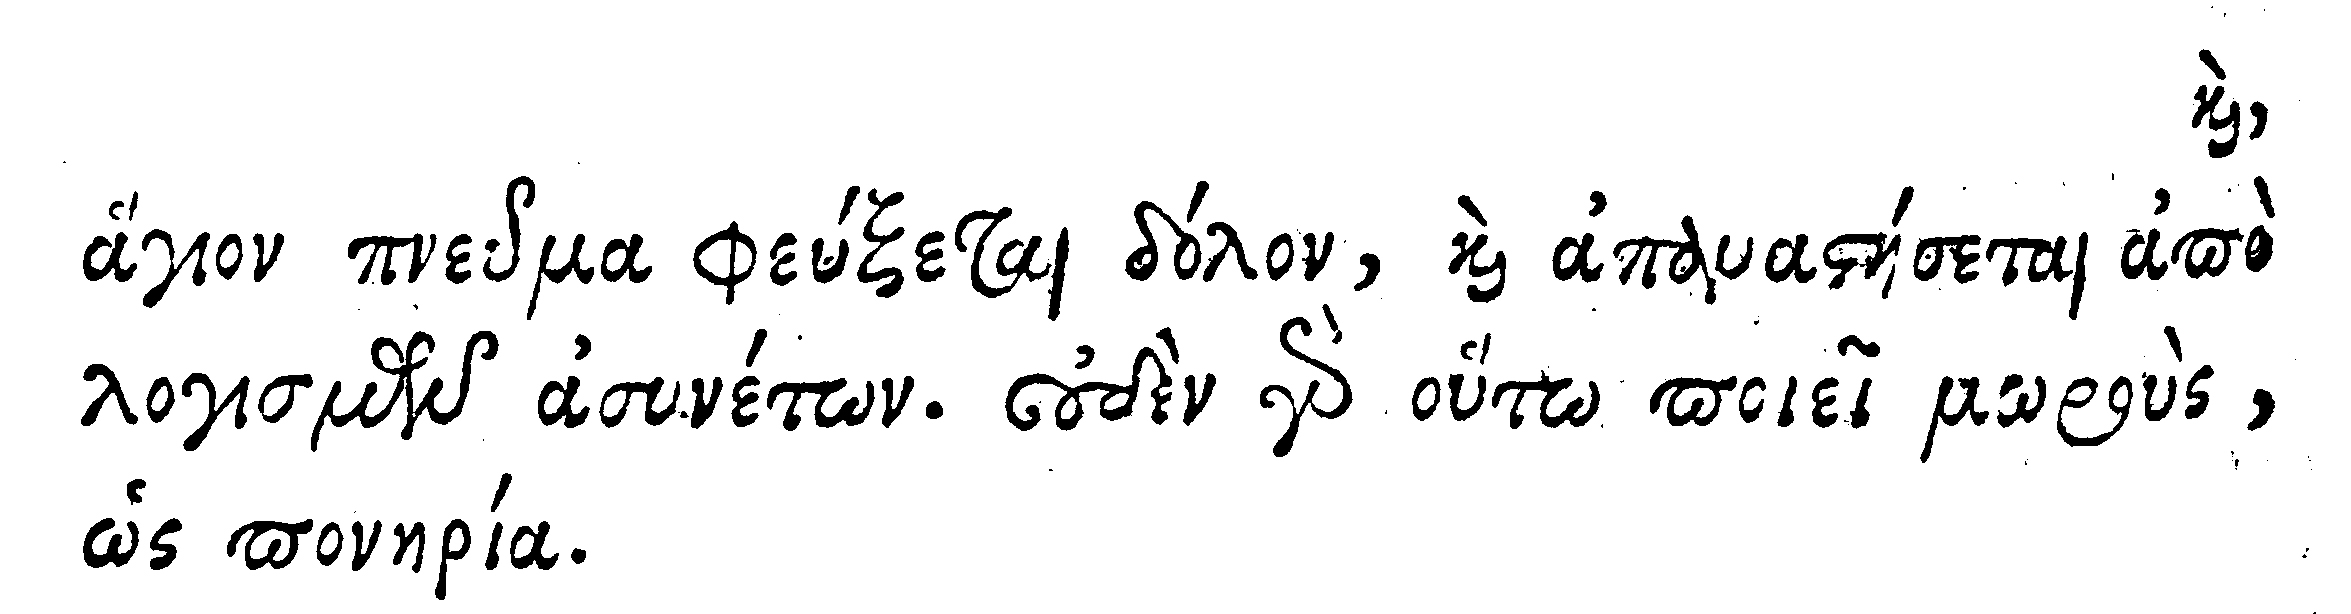 καὶ,
ἅγιον πνεῦμα φεύξεται δόλον, καὶ ἀπαναστήσεται ἀπὸ
λογισμῶν ἀσυνέτων. οὐδὲν γὰρ οὕτω ποιεῖ μωροὺς,
ὡς πονηρία.